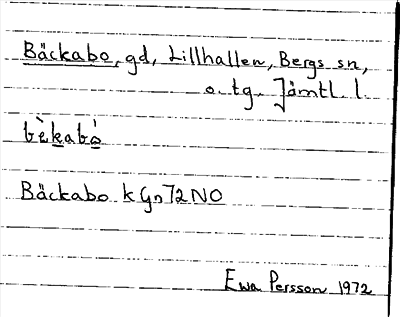 Bäckabo, gd, Lillhallen, Bergs sn,
o. tg. Jämtl. l.
bèkabó̱
Bäckabo kGn72NO
Ewa Persson 1972